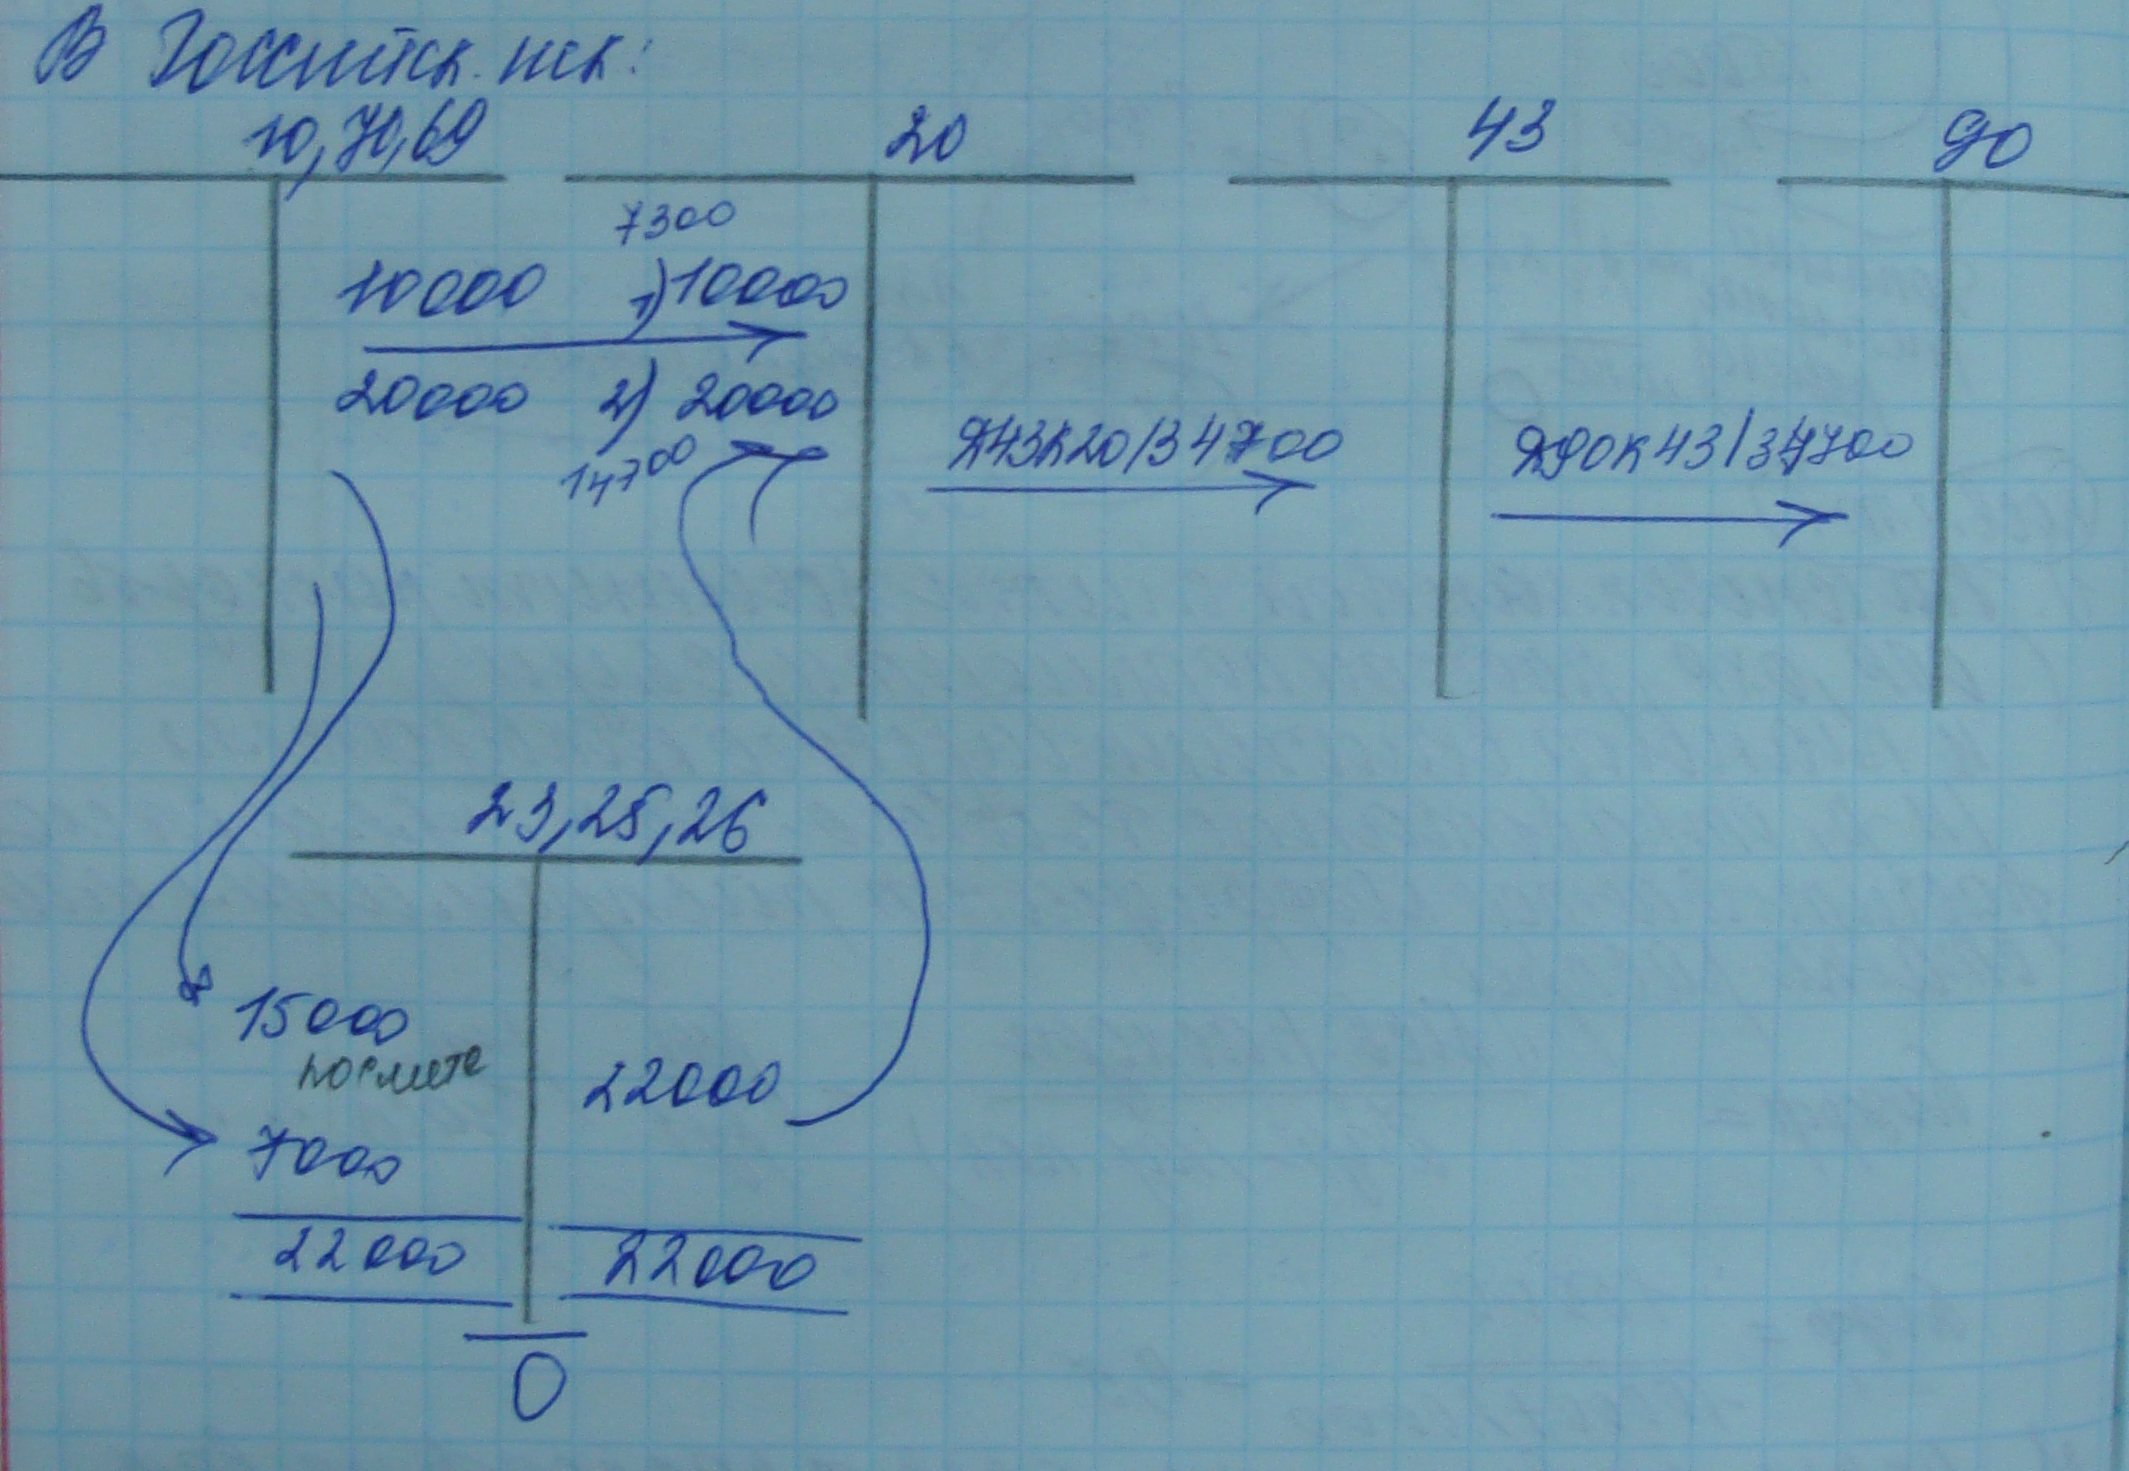 В Российск. шк:
10,70,69
20
43
90
7300
10000 1) 10000
20000 2) 20000
14700
Д43К20/34700
Д90К43/34700
23,25,26
15000
22000
7000
22000
22000
0